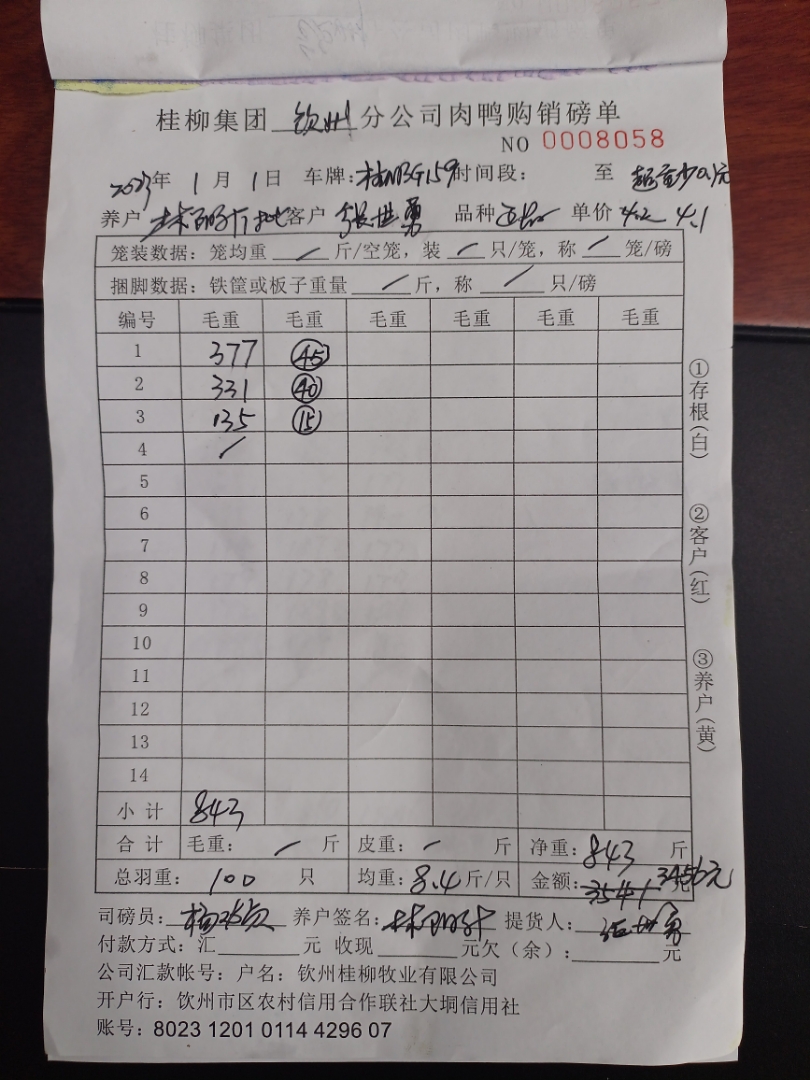 桂柳集团 钦州 分公司肉鸭购销磅单
NO 0008058
2023年 1月 1日 车牌: 时间段: 至 超重少0.1元
养户 客户 张世勇 品种 单价 4.2 4.1
笼装数据: 笼均重 / 斤/空笼, 装 / 只/笼, 称 / 笼/磅
捆脚数据: 铁筐或板子重量 / 斤, 称 / 只/磅
编号 毛重 毛重 毛重 毛重 毛重 毛重
1 377 45
2 331 40
3 135 15
4 /
5
6
7
8
9
10
11
12
13
14
小计 843
合计 毛重: / 斤 皮重: / 斤 净重: 843 斤
总羽重: 100 只 均重: 8.4 斤/只 金额: 3541 3456元
司磅员: 养户签名: 提货人: 张世勇
付款方式: 汇 元 收现 元欠(余): 元
公司汇款帐号: 户名: 钦州桂柳牧业有限公司
开户行: 钦州市区农村信用合作联社大垌信用社
账号: 8023 1201 0114 4296 07
①存根(白)
②客户(红)
③养户(黄)